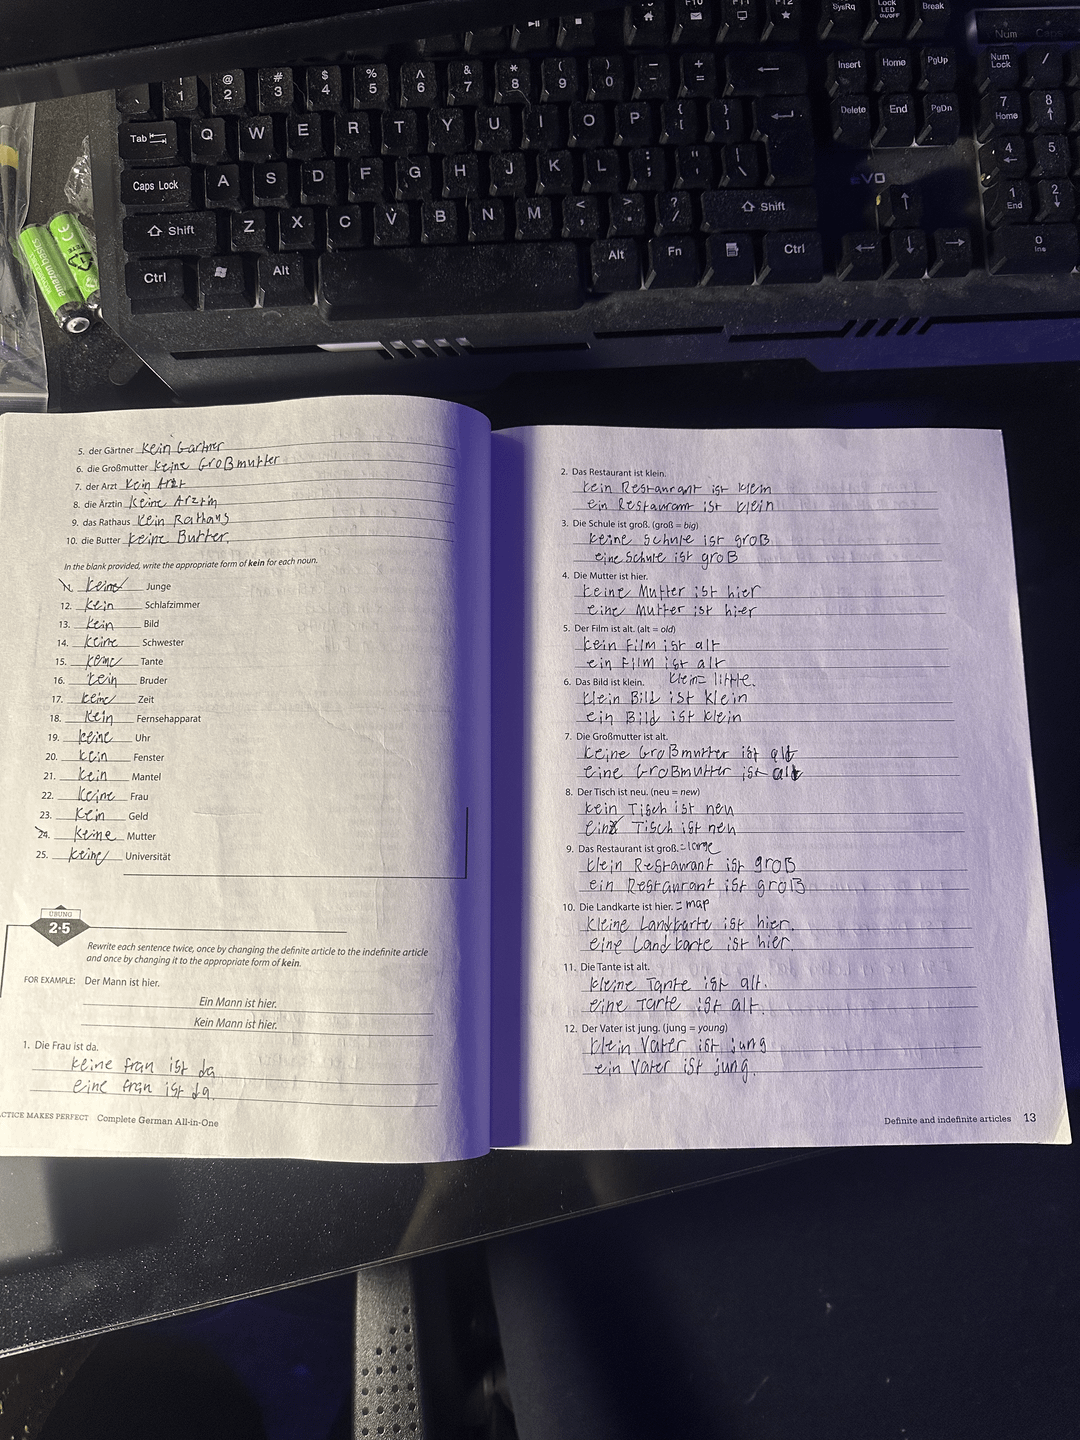 F10 F11 F12 SysRq Lock LED ON/OFF Break
Num Caps
! @ # $ % ^ & * ( ) _ +
1 2 3 4 5 6 7 8 9 0 - =
Insert Home PgUp Num Lock /
Tab Q W E R T Y U I O P { [ } ]
Delete End PgDn 7 Home 8
Caps Lock A S D F G H J K L : ; " ' | \
4 5
eVO
Shift Z X C V B N M < , > . ? / Shift
1 End 2
Ctrl Alt Alt Fn Ctrl
0 Ins
amazon basics
5. der Gärtner kein Gärtner
6. die Großmutter keine Großmutter
7. der Arzt kein Arzt
8. die Ärztin keine Arztin
9. das Rathaus kein Rathaus
10. die Butter keine Butter.
In the blank provided, write the appropriate form of kein for each noun.
keine Junge
12. kein Schlafzimmer
13. kein Bild
14. keine Schwester
15. keine Tante
16. kein Bruder
17. keine Zeit
18. kein Fernsehapparat
19. keine Uhr
20. kein Fenster
21. kein Mantel
22. keine Frau
23. kein Geld
24. keine Mutter
25. keine Universität
ÜBUNG
2·5
Rewrite each sentence twice, once by changing the definite article to the indefinite article
and once by changing it to the appropriate form of kein.
FOR EXAMPLE: Der Mann ist hier.
Ein Mann ist hier.
Kein Mann ist hier.
1. Die Frau ist da.
keine frau ist da
eine frau ist da.
CTICE MAKES PERFECT Complete German All-in-One
2. Das Restaurant ist klein.
kein Restaurant ist klein
ein Restaurant ist klein
3. Die Schule ist groß. (groß = big)
keine Schule ist groß
eine Schule ist groß
4. Die Mutter ist hier.
keine Mutter ist hier
eine Mutter ist hier
5. Der Film ist alt. (alt = old)
kein Film ist alt
ein Film ist alt
6. Das Bild ist klein. klein= little.
klein Bild ist klein
ein Bild ist klein
7. Die Großmutter ist alt.
keine Großmutter ist alt
eine Großmutter ist alt
8. Der Tisch ist neu. (neu = new)
kein Tisch ist neu
ein Tisch ist neu
9. Das Restaurant ist groß. = large
klein Restaurant ist groß
ein Restaurant ist groß
10. Die Landkarte ist hier. = map
kleine Landkarte ist hier.
eine Landkarte ist hier
11. Die Tante ist alt.
kleine Tante ist alt.
eine Tante ist alt.
12. Der Vater ist jung. (jung = young)
klein Vater ist jung
ein Vater ist jung.
Definite and indefinite articles 13